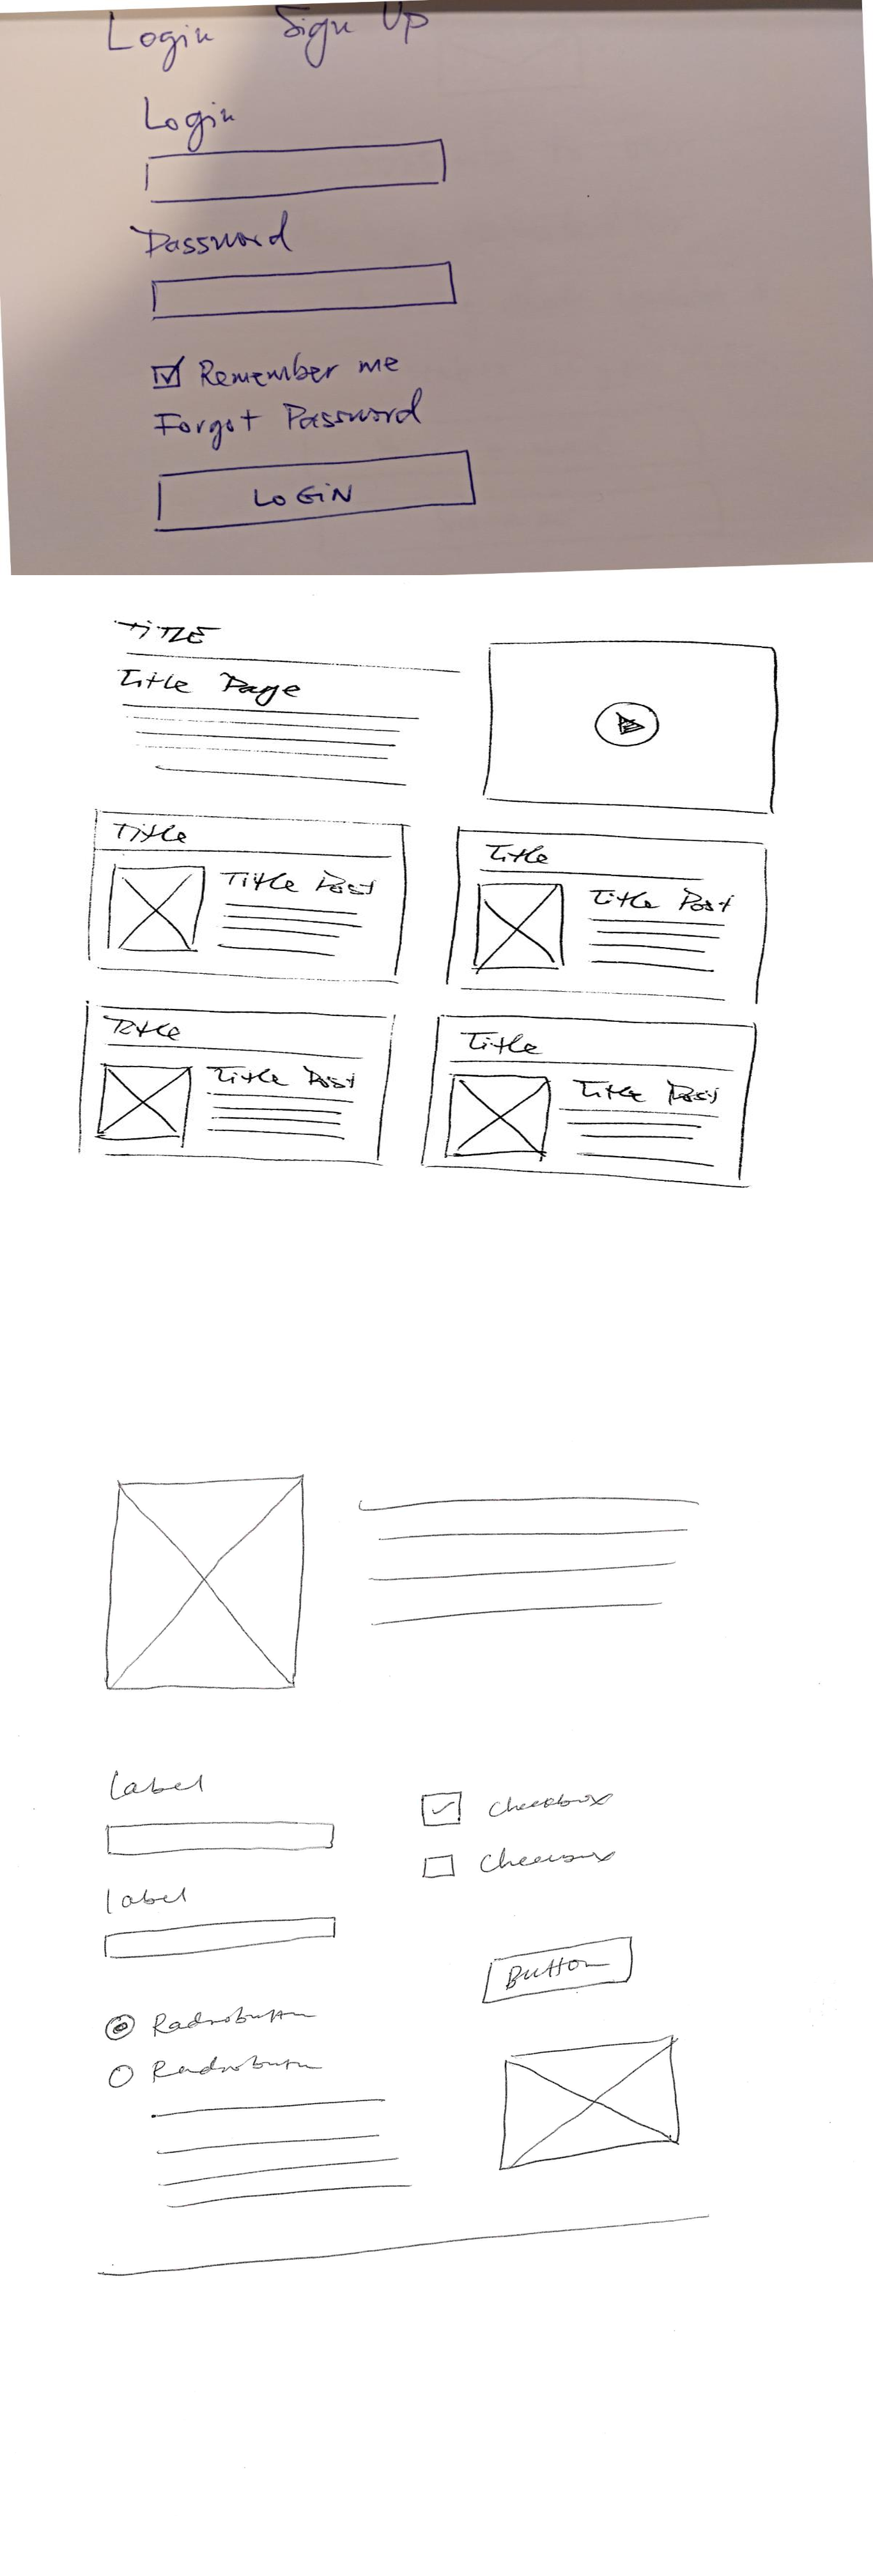 Login Sign Up
Login
Password
Remember me
Forgot Password
LOGIN
TITLE
Title Page
Title
Title Post
Title
Title Post
Title
Title Post
Title
Title Post
Label
Checkbox
Checkbox
Label
Button
Radiobutton
Radiobutton